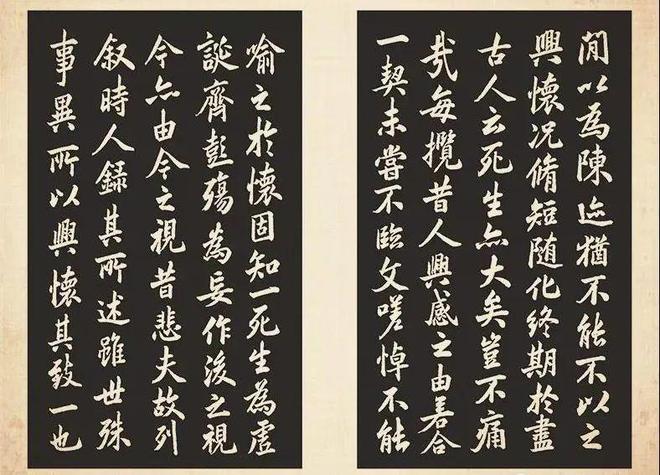 閒以為陳迹猶不能不以之
興懷况脩短随化終期於盡
古人云死生亦大矣豈不痛
哉每攬昔人興感之由若合
一契未嘗不臨文嗟悼不能
喻之於懷固知一死生為虛
誕齊彭殤為妄作後之視
今亦由今之視昔悲夫故列
叙時人錄其所述雖世殊
事異所以興懷其致一也